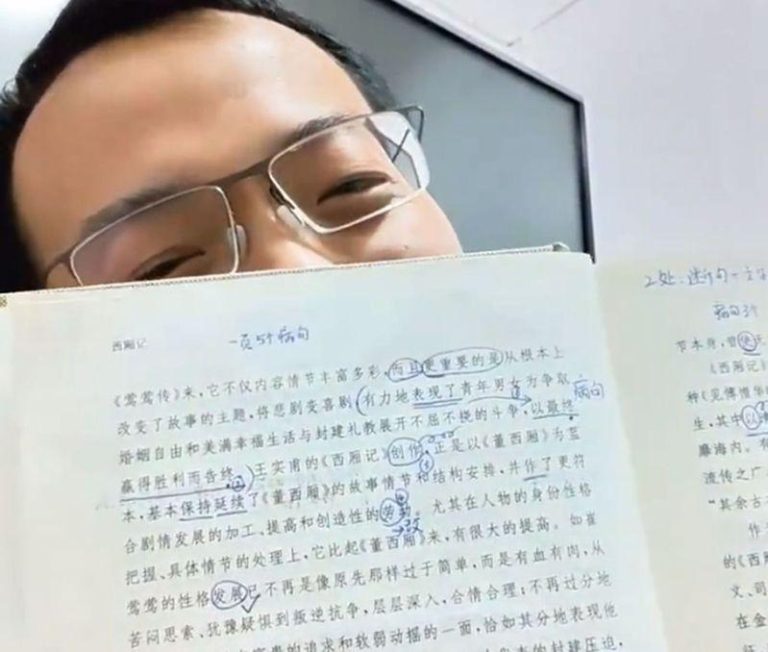 西厢记
一页5个病句
《莺莺传》来，它不仅内容情节丰富多彩，而且更重要的是从根本上
改变了故事的主题，将悲剧变喜剧（有力地表现了青年男女为争取
病句
婚姻自由和美满幸福生活与封建礼教展开不屈不挠的斗争，以最终
赢得胜利而告终。）王实甫的《西厢记》创作，正是以《董西厢》为蓝
本，基本保持延续了《董西厢》的故事情节和结构安排，并作了更符
合剧情发展的加工、提高和创造性的劳动。尤其在人物的身份性格
改
把握、具体情节的处理上，它比起《董西厢》来，有很大的提高。如崔
莺莺的性格发展已不再是像原先那样过于简单，而是有血有肉，从
苦闷思索、犹豫疑惧到叛逆抗争，层层深入，合情合理；不再过分地
的追求和软弱动摇的一面，恰如其分地表现他
的封建压迫，
2处：
病句3个
节本身，曾
《西厢记》
种《见博惟华
生，其中以
靡海内。有
流传之广
“其余古
作
的《西厢
文、司
在金